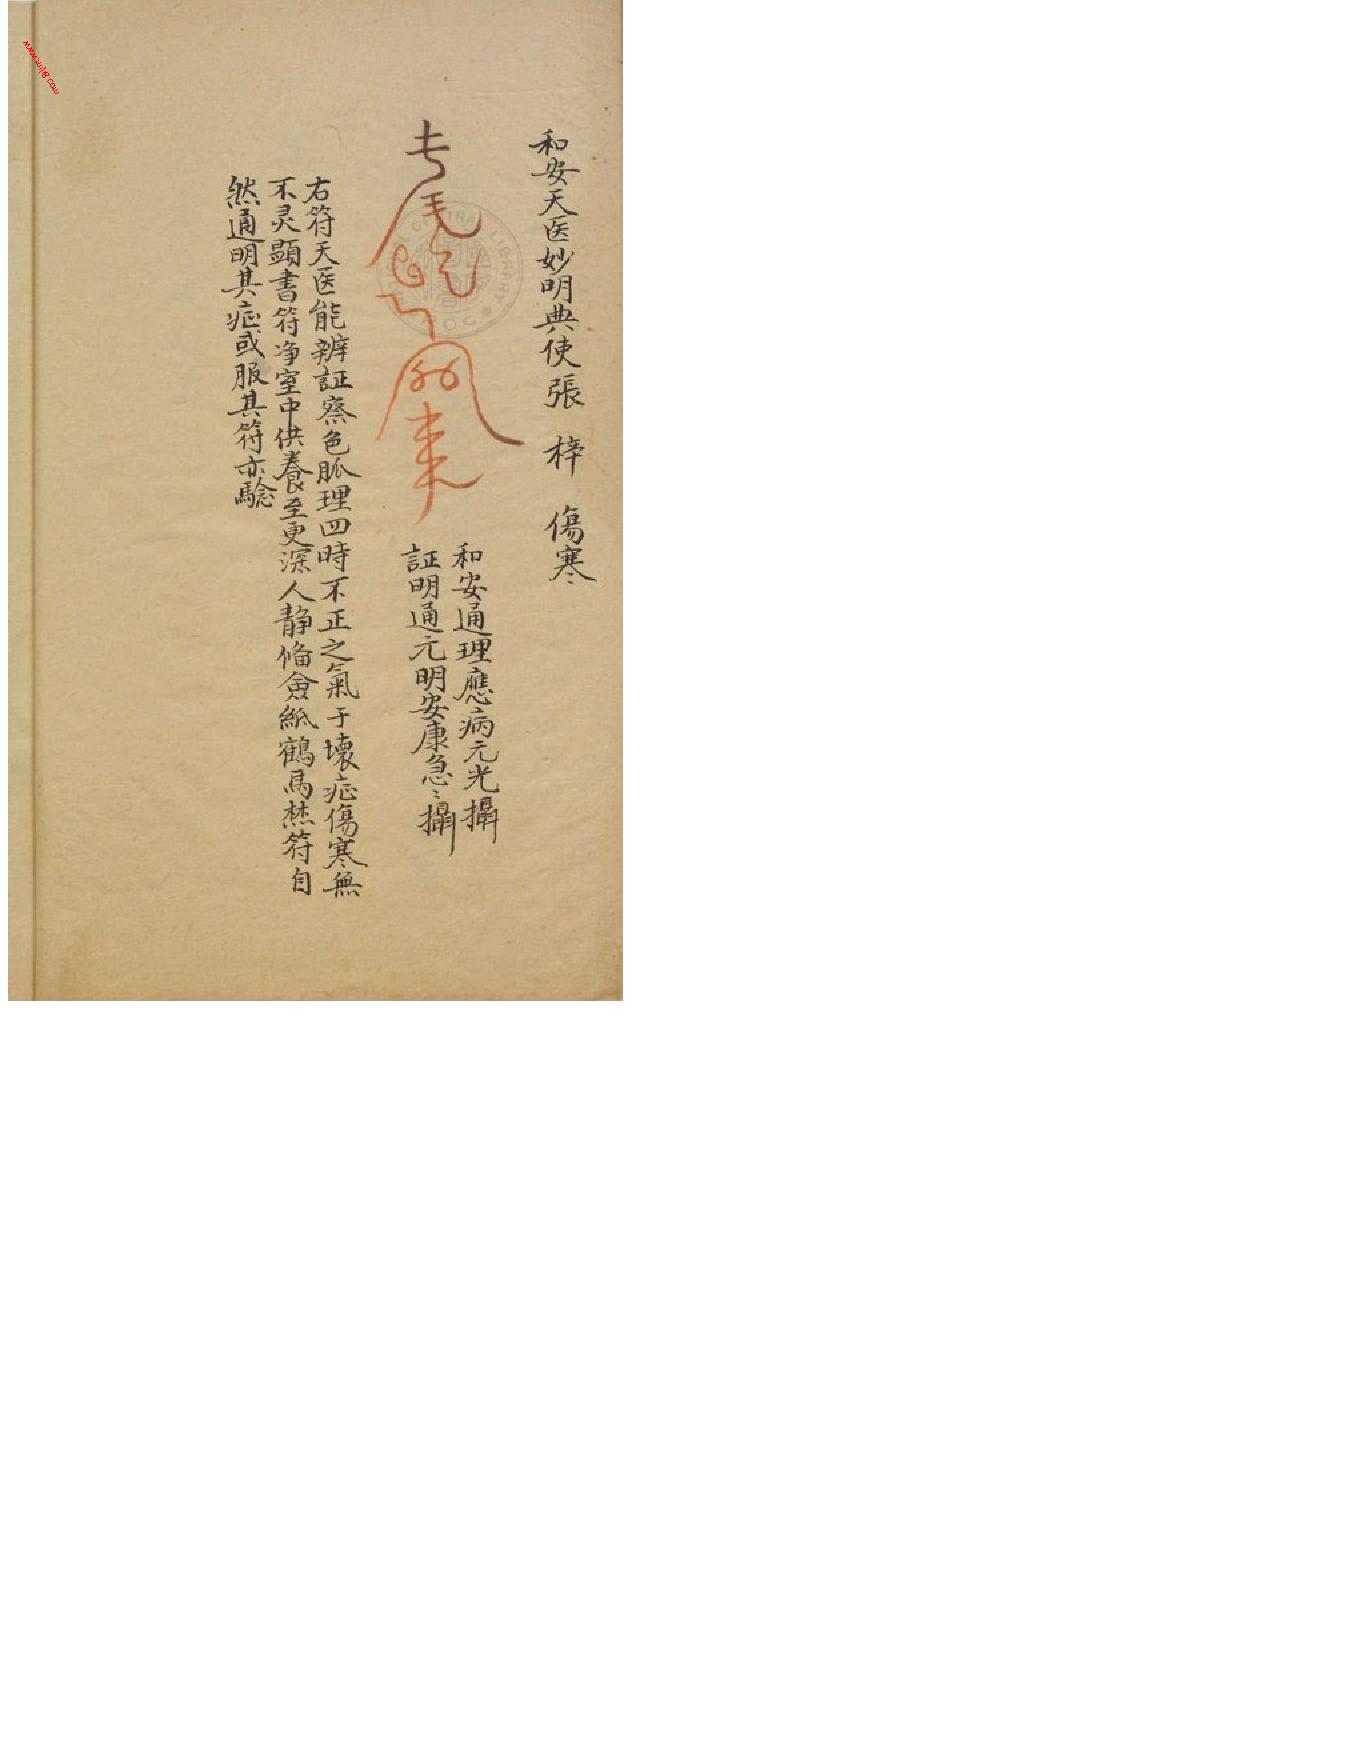 和安天医妙明典使張 梓 傷寒
和安通理應病元光攝
証明通元明安康急〻攝
右符天医能辨証察色脈理四時不正之氣于壞症傷寒無
不灵顯書符净室中供養至更深人静俻僉紙鶴馬焚符自
然通明其症或服其符亦驗
CENTRAL LIBRARY
www.mjlg.com